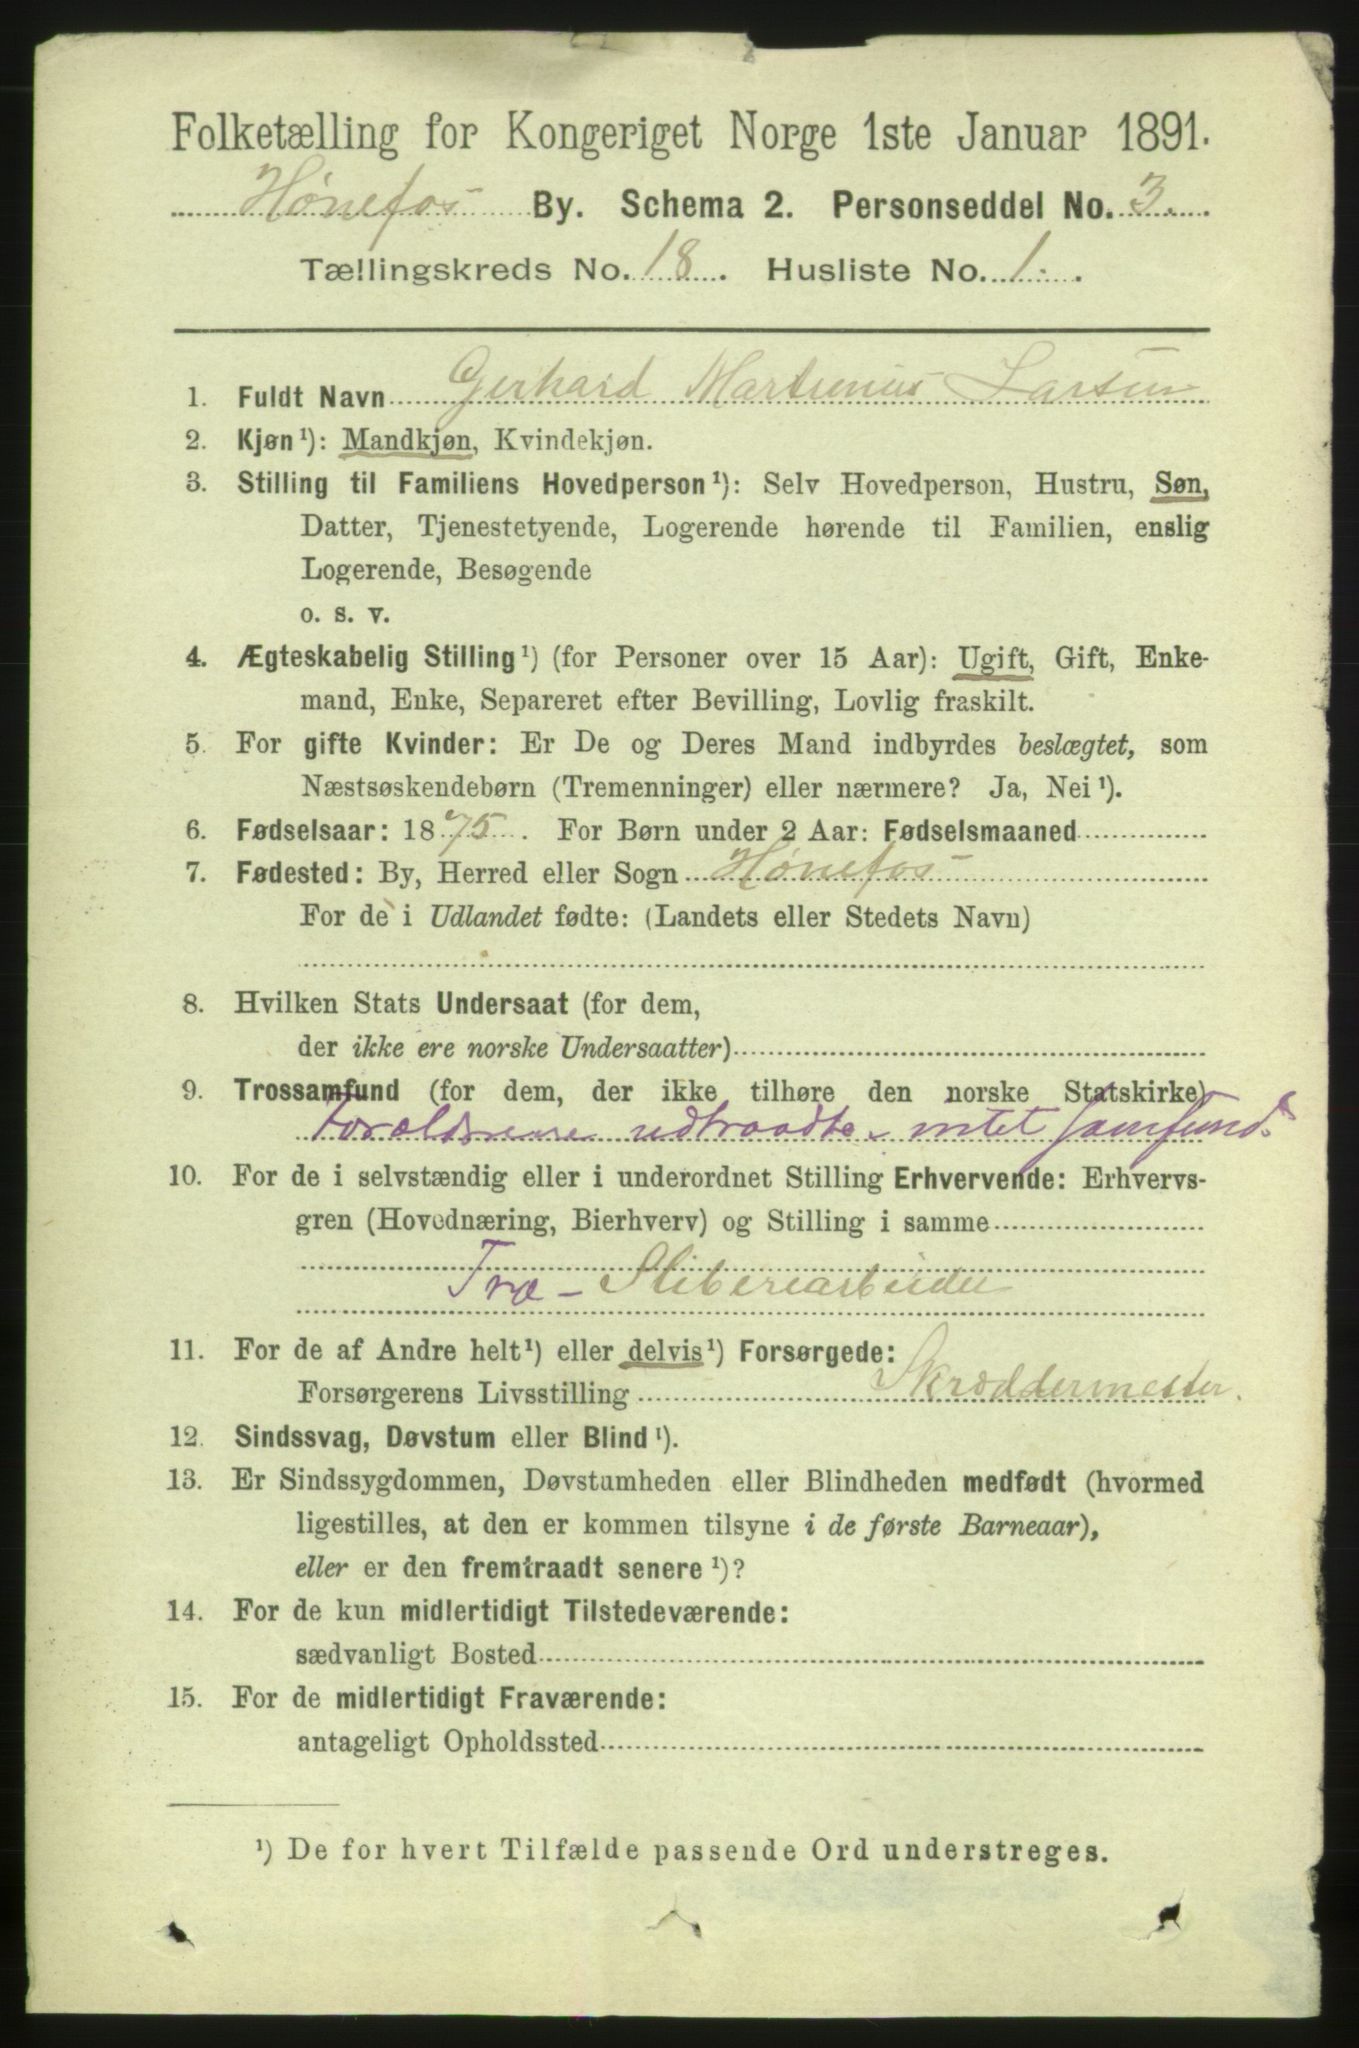 Folketælling for Kongeriget Norge 1ste Januar 1891.
Hønefos By. Schema 2. Personseddel No. 3.
Tællingskreds No. 18. Husliste No. 1.
1. Fuldt Navn Gerhard Martinius Larsen
2. Kjøn¹): Mandkjøn, Kvindekjøn.
3. Stilling til Familiens Hovedperson¹): Selv Hovedperson, Hustru, Søn,
Datter, Tjenestetyende, Logerende hørende til Familien, enslig
Logerende, Besøgende
o. s. v.
4. Ægteskabelig Stilling¹) (for Personer over 15 Aar): Ugift, Gift, Enke-
mand, Enke, Separeret efter Bevilling, Lovlig fraskilt.
5. For gifte Kvinder: Er De og Deres Mand indbyrdes beslægtet, som
Næstsøskendebørn (Tremenninger) eller nærmere? Ja, Nei¹).
6. Fødselsaar: 1875. For Børn under 2 Aar: Fødselsmaaned
7. Fødested: By, Herred eller Sogn Hønefos
For de i Udlandet fødte: (Landets eller Stedets Navn)
8. Hvilken Stats Undersaat (for dem,
der ikke ere norske Undersaatter)
9. Trossamfund (for dem, der ikke tilhøre den norske Statskirke)
Forældrene udtraadte, intet Samfund.
10. For de i selvstændig eller i underordnet Stilling Erhvervende: Erhvervs-
gren (Hovednæring, Bierhverv) og Stilling i samme
Træ-Sliberiarbeider
11. For de af Andre helt¹) eller delvis¹) Forsørgede:
Forsørgerens Livsstilling Skræddermester.
12. Sindssvag, Døvstum eller Blind¹).
13. Er Sindssygdommen, Døvstumheden eller Blindheden medfødt (hvormed
ligestilles, at den er kommen tilsyne i de første Barneaar),
eller er den fremtraadt senere¹)?
14. For de kun midlertidigt Tilstedeværende:
sædvanligt Bosted
15. For de midlertidigt Fraværende:
antageligt Opholdssted
¹) De for hvert Tilfælde passende Ord understreges.